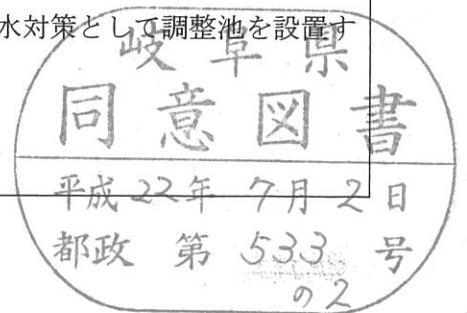 水対策として調整池を設置す
岐阜県
同意図書
平成22年 7月 2日
都政 第 533 号
の2